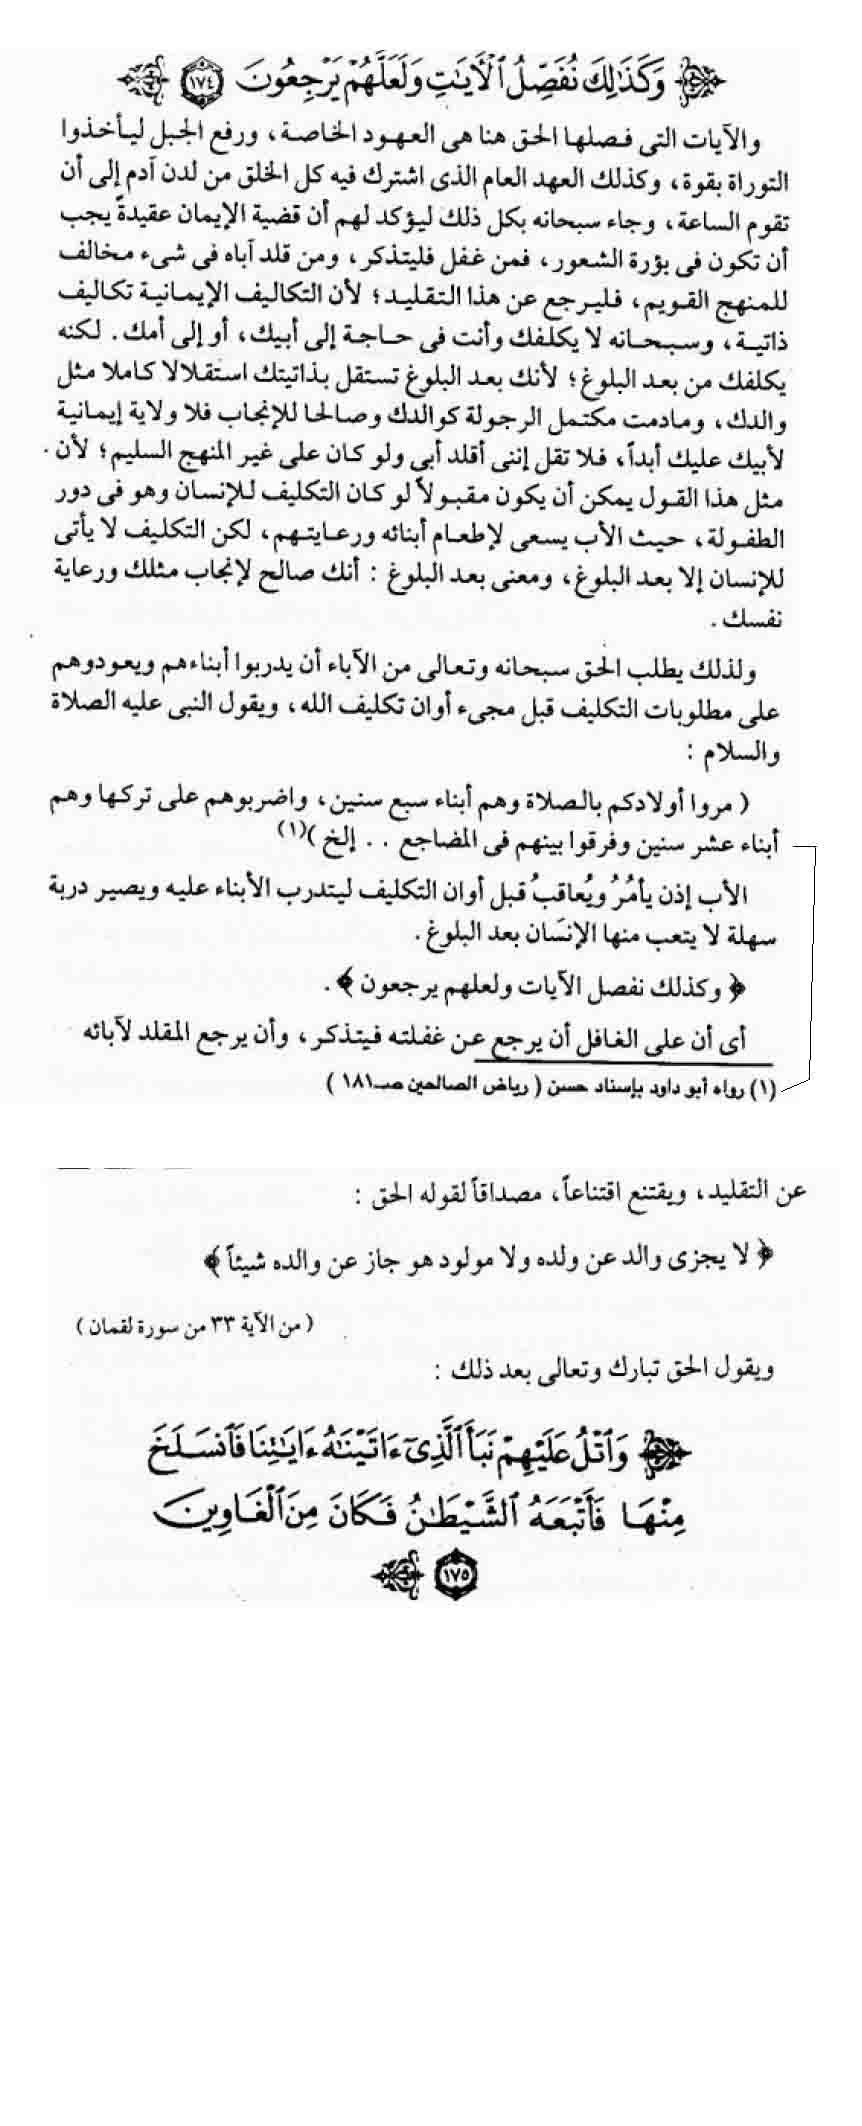 وَكَذَٰلِكَ نُفَصِّلُ ٱلْءَايَٰتِ وَلَعَلَّهُمْ يَرْجِعُونَ ١٧٤
والآيات التى فصلها الحق هنا هى العهود الخاصة، ورفع الجبل ليأخذوا
التوراة بقوة، وكذلك العهد العام الذى اشترك فيه كل الخلق من لدن آدم إلى أن
تقوم الساعة، وجاء سبحانه بكل ذلك ليؤكد لهم أن قضية الإيمان عقيدةً يجب
أن تكون فى بؤرة الشعور، فمن غفل فليتذكر، ومن قلد آباه فى شىء مخالف
للمنهج القويم، فليرجع عن هذا التقليد؛ لأن التكاليف الإيمانية تكاليف
ذاتية، وسبحانه لا يكلفك وأنت فى حاجة إلى أبيك، أو إلى أمك. لكنه
يكلفك من بعد البلوغ؛ لأنك بعد البلوغ تستقل بذاتيتك استقلالا كاملا مثل
والدك، ومادمت مكتمل الرجولة كوالدك وصالحا للإنجاب فلا ولاية إيمانية
لأبيك عليك أبداً، فلا تقل إننى أقلد أبى ولو كان على غير المنهج السليم؛ لأن
مثل هذا القول يمكن أن يكون مقبولاً لو كان التكليف للإنسان وهو فى دور
الطفولة، حيث الأب يسعى لإطعام أبنائه ورعايتهم، لكن التكليف لا يأتى
للإنسان إلا بعد البلوغ، ومعنى بعد البلوغ : أنك صالح لإنجاب مثلك ورعاية
نفسك.
ولذلك يطلب الحق سبحانه وتعالى من الآباء أن يدربوا أبناءهم ويعودوهم
على مطلوبات التكليف قبل مجىء أوان تكليف الله، ويقول النبى عليه الصلاة
والسلام :
( مروا أولادكم بالصلاة وهم أبناء سبع سنين، واضربوهم على تركها وهم
أبناء عشر سنين وفرقوا بينهم فى المضاجع .. إلخ )(١)
الأب إذن يأمُرُ ويُعاقبُ قبل أوان التكليف ليتدرب الأبناء عليه ويصير دربة
سهلة لا يتعب منها الإنسَان بعد البلوغ.
﴿ وكذلك نفصل الآيات ولعلهم يرجعون ﴾.
أى أن على الغافل أن يرجع عن غفلته فيتذكر، وأن يرجع المقلد لآبائه
(١) رواه أبو داود بإسناد حسن ( رياض الصالحين صـ١٨١ )
عن التقليد، ويقتنع اقتناعاً، مصداقاً لقوله الحق :
﴿ لا يجزى والد عن ولده ولا مولود هو جاز عن والده شيئاً ﴾
( من الآية ٣٣ من سورة لقمان )
ويقول الحق تبارك وتعالى بعد ذلك :
وَٱتْلُ عَلَيْهِمْ نَبَأَ ٱلَّذِىٓ ءَاتَيْنَٰهُ ءَايَٰتِنَا فَٱنسَلَخَ
مِنْهَا فَأَتْبَعَهُ ٱلشَّيْطَٰنُ فَكَانَ مِنَ ٱلْغَاوِينَ
١٧٥